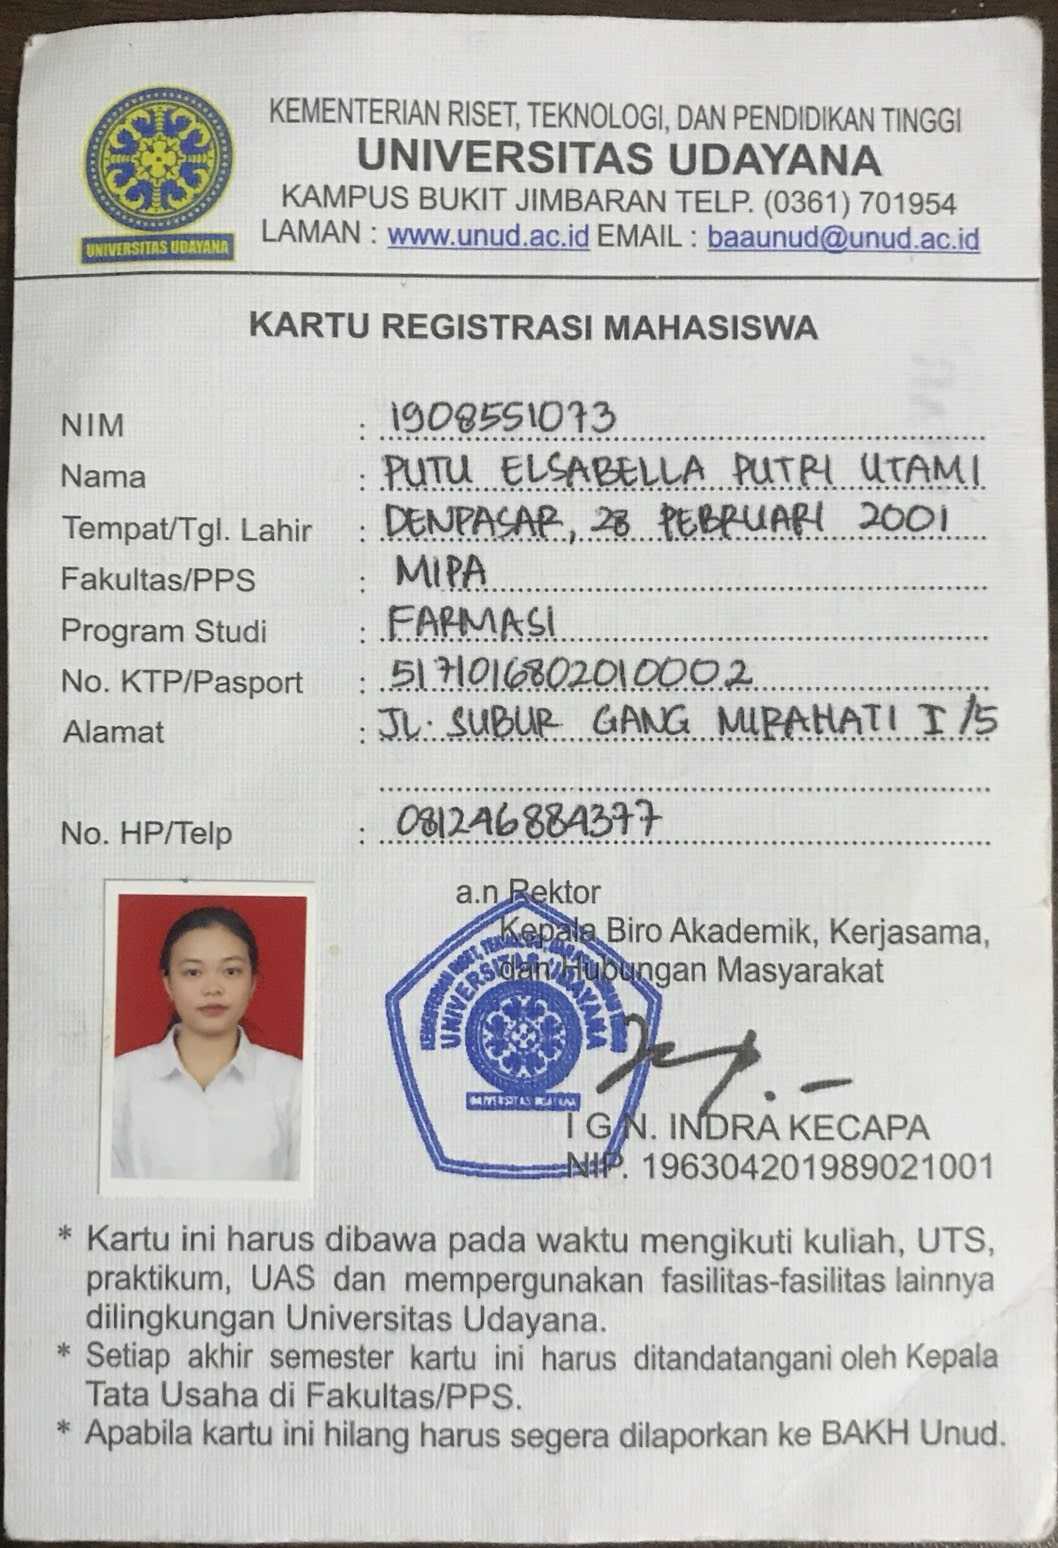 KEMENTERIAN RISET, TEKNOLOGI, DAN PENDIDIKAN TINGGI
UNIVERSITAS UDAYANA
KAMPUS BUKIT JIMBARAN TELP. (0361) 701954
LAMAN : www.unud.ac.id EMAIL : baaunud@unud.ac.id
UNIVERSITAS UDAYANA
KARTU REGISTRASI MAHASISWA
NIM : 1908551073
Nama : PUTU ELSABELLA PUTRI UTAMI
Tempat/Tgl. Lahir : DENPASAR, 28 PEBRUARI 2001
Fakultas/PPS : MIPA
Program Studi : FARMASI
No. KTP/Pasport : 5171016802010002
Alamat : JL. SUBUR GANG MIRAHATI I /5
No. HP/Telp : 081246884377
a.n Rektor
Kepala Biro Akademik, Kerjasama,
dan Hubungan Masyarakat
UNIVERSITAS UDAYANA
UNIVERSITAS UDAYANA
I G N. INDRA KECAPA
NIP. 196304201989021001
* Kartu ini harus dibawa pada waktu mengikuti kuliah, UTS,
praktikum, UAS dan mempergunakan fasilitas-fasilitas lainnya
dilingkungan Universitas Udayana.
* Setiap akhir semester kartu ini harus ditandatangani oleh Kepala
Tata Usaha di Fakultas/PPS.
* Apabila kartu ini hilang harus segera dilaporkan ke BAKH Unud.